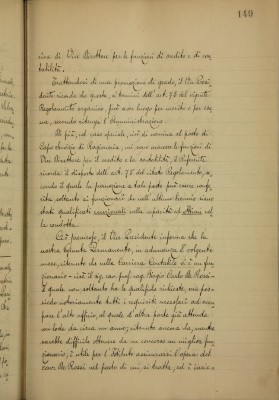 149
sica di Vice Direttore per le funzioni di credito e di con-
tabilità.
Trattandosi di una promozione di grado, il Vice Presi-
dente ricorda che questa, a termini dell'art. 75 del vigente
Regolamento organico, può aver luogo per merito o per esa-
me, secondo ritenga l'Amministrazione.
Di più, nel caso speciale, cioè di nomina al posto di
Capo Servizio di Ragioneria, cui sono annesse le funzioni di
Vice Direttore per il credito e la contabilità, il Riferente
ricorda il disposto dell'art. 78 del citato Regolamento, se-
condo il quale la promozione a tale posto può essere confe-
rita soltanto ai funzionari che nell'ultimo triennio siano
stati qualificati eccezionali nella capacità ed ottimi nel-
la condotta.
Ciò premesso, il Vice Presidente informa che la
nostra Giunta Permanente, in adunanza del volgente
mese, ritenuto che nella Carriera Contabile vi è un fun-
zionario - cioè il cav. prof. rag. Sergio Carlo De Rossi -
il quale non soltanto ha le qualifiche richieste, ma pos-
siede notoriamente tutti i requisiti necessari ad occu-
pare l'alto ufficio, al quale d'altra parte già attende
con lode da circa un anno; ritenuto ancora che, mentre
sarebbe difficile ottenere da un concorso un miglior fun-
zionario, è utile per l'Istituto assicurarsi l'opera del
cav. De Rossi nel posto di cui si tratta, ed è